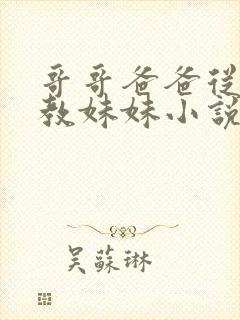 哥哥爸爸從
教妹妹小說
吳蘇琳